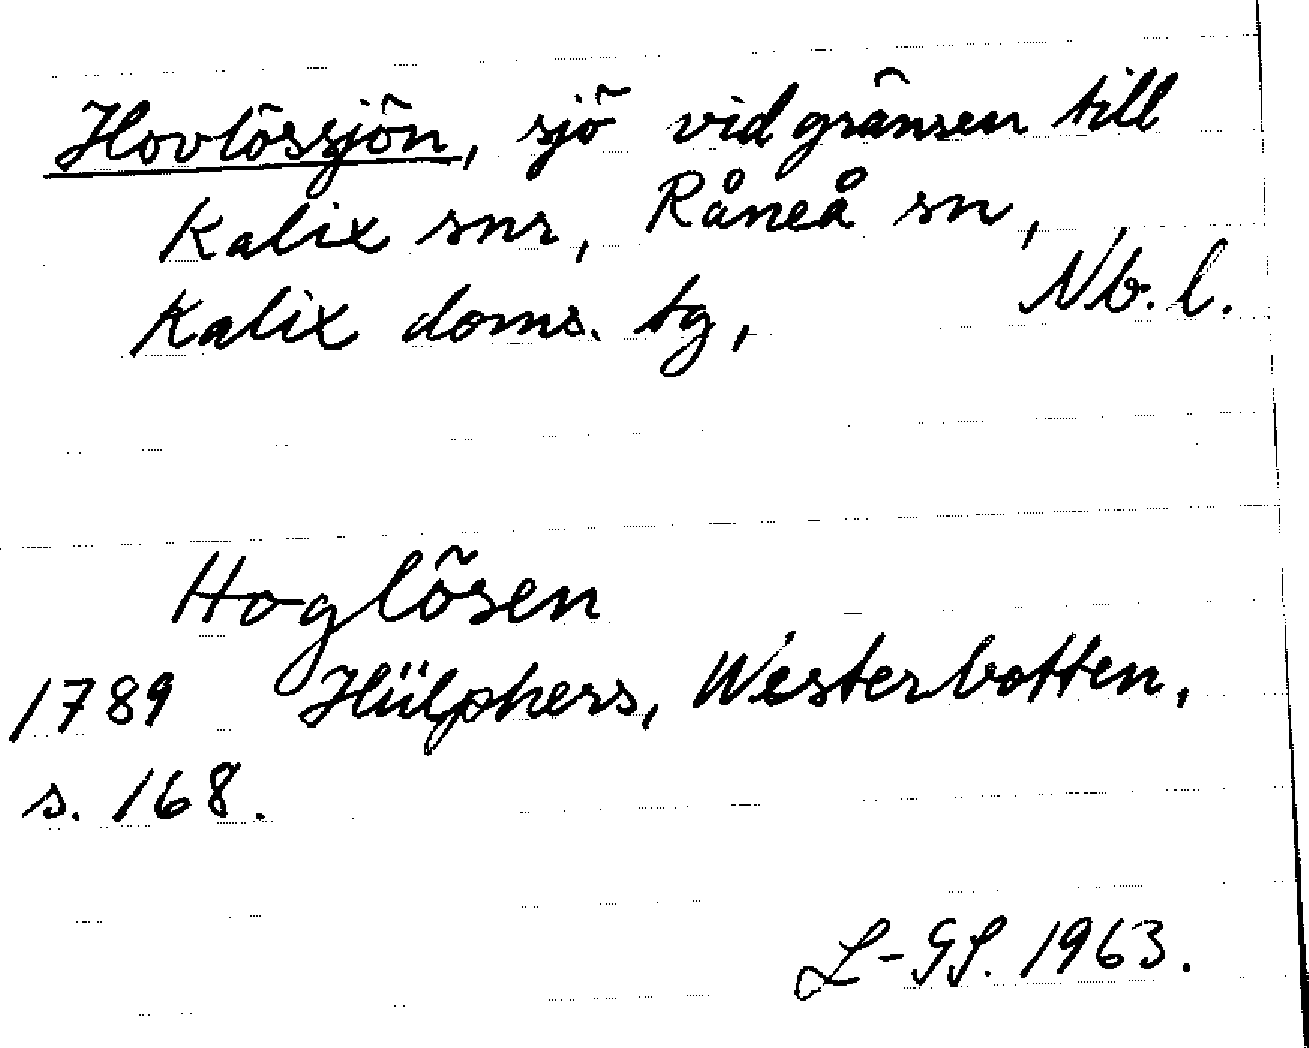 Hovlössjön, sjö vid gränsen till
Kalix snr, Råneå sn,
Kalix doms. tg, Nb. l.
Hoglösen
1789 Hülphers, Westerbotten,
s. 168.
L-GS. 1963.